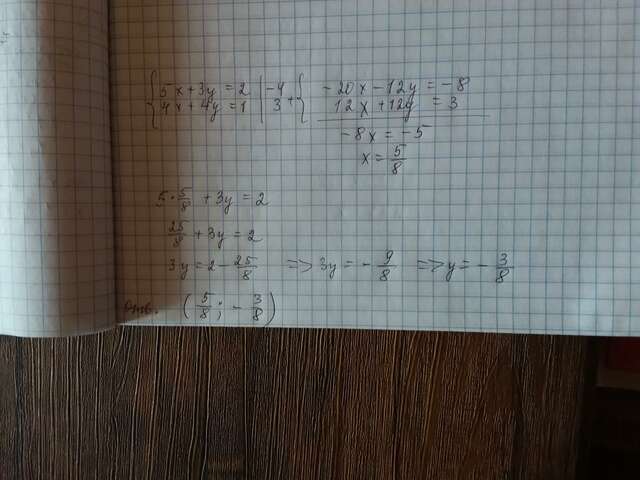 { 5x+3y=2 | -4
4x+4y=1 | 3 + { -20x-12y=-8
12x+12y=3
-8x=-5
x=5/8
5·5/8+3y=2
25/8+3y=2
3y=2-25/8 => 3y=-9/8 => y=-3/8
Отв. (5/8; -3/8)